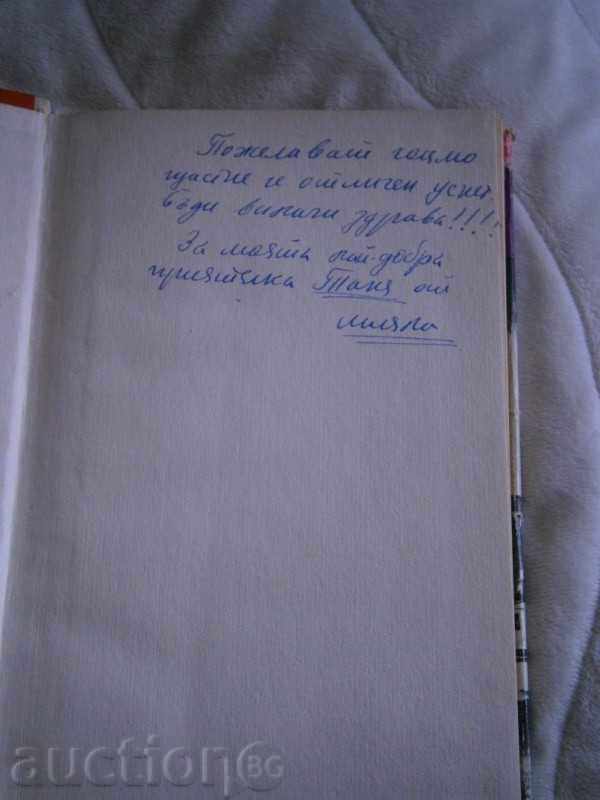 Пожелавам голямо
щастие и отличен успех.
Бъди винаги здрава!!!!
За моята най-добра
приятелка Таня от
auctionBG